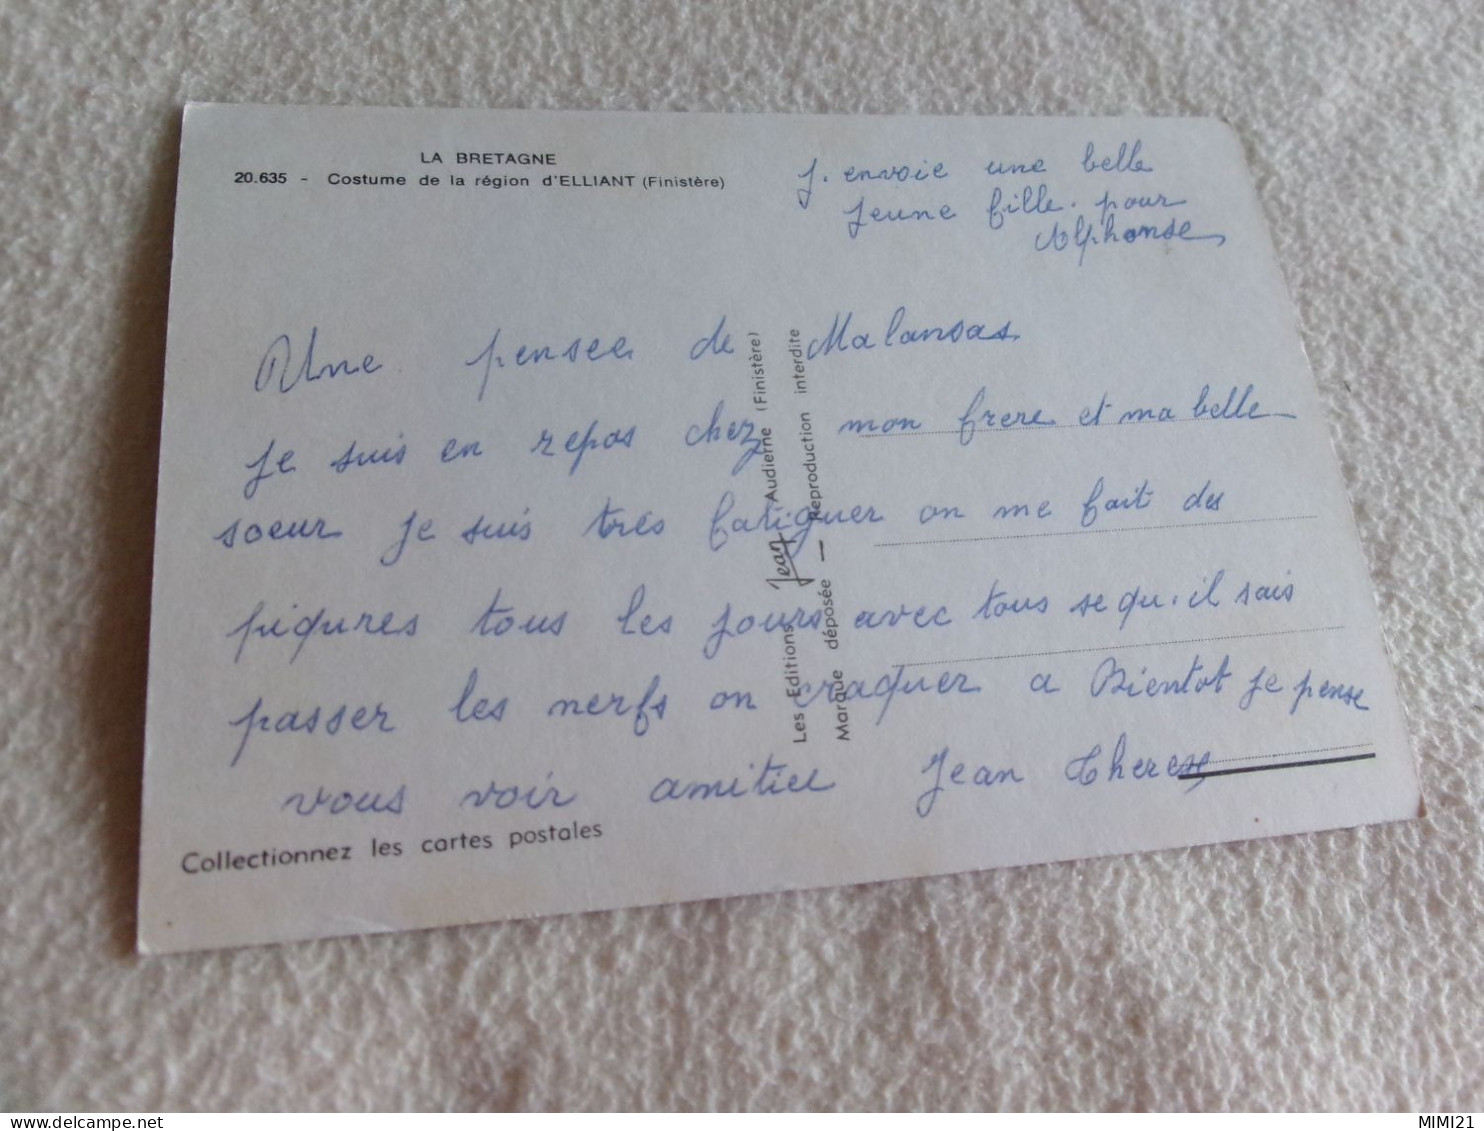 LA BRETAGNE
20.635 - Costume de la région d'ELLIANT (Finistère)
J. envoie une belle
jeune fille. pour
Alphonse
Une pensee de Malansas
Je suis en repos chez mon frere et ma belle
soeur Je suis très fatiguer on me fait des
piqures tous les jours avec tous se qu.il sais
passer les nerfs on craquer a Bientot Je pense
vous voir amitiee Jean Therese
Collectionnez les cartes postales
Les Editions Jean Audierne (Finistère)
Marque déposée — Reproduction interdite
MIMI21